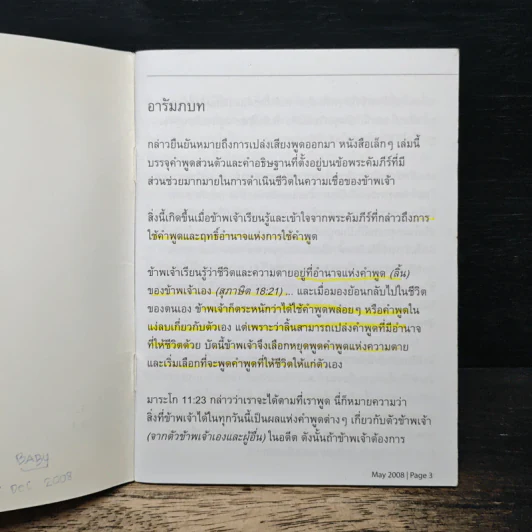 อารัมภบท
กล่าวยืนยันหมายถึงการเปล่งเสียงพูดออกมา หนังสือเล็กๆ เล่มนี้
บรรจุคำพูดส่วนตัวและคำอธิษฐานที่ตั้งอยู่บนข้อพระคัมภีร์ที่มี
ส่วนช่วยมากมายในการดำเนินชีวิตในความเชื่อของข้าพเจ้า
สิ่งนี้เกิดขึ้นเมื่อข้าพเจ้าเรียนรู้และเข้าใจจากพระคัมภีร์ที่กล่าวถึงการ
ใช้คำพูดและฤทธิ์อำนาจแห่งการใช้คำพูด
ข้าพเจ้าเรียนรู้ว่าชีวิตและความตายอยู่ที่อำนาจแห่งคำพูด (ลิ้น)
ของข้าพเจ้าเอง (สุภาษิต 18:21) ... และเมื่อมองย้อนกลับไปในชีวิต
ของตนเอง ข้าพเจ้าก็ตระหนักว่าได้ใช้คำพูดพล่อยๆ หรือคำพูดใน
แง่ลบเกี่ยวกับตัวเอง แต่เพราะว่าลิ้นสามารถเปล่งคำพูดที่มีอำนาจ
ที่ให้ชีวิตด้วย บัดนี้ข้าพเจ้าจึงเลือกหยุดพูดคำพูดแห่งความตาย
และเริ่มเลือกที่จะพูดคำพูดที่ให้ชีวิตให้แก่ตัวเอง
มาระโก 11:23 กล่าวว่าเราจะได้ตามที่เราพูด นี่ก็หมายความว่า
สิ่งที่ข้าพเจ้าได้ในทุกวันนี้เป็นผลแห่งคำพูดต่างๆ เกี่ยวกับตัวข้าพเจ้า
(จากตัวข้าพเจ้าเองและผู้อื่น) ในอดีต ดังนั้นถ้าข้าพเจ้าต้องการ
May 2008 | Page 3
BABY
2008